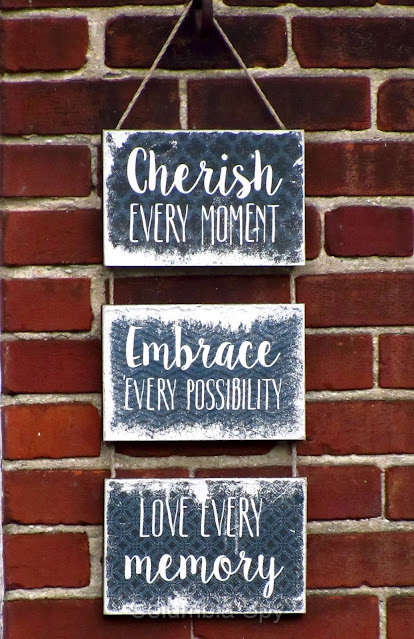 Cherish
EVERY MOMENT
Embrace
EVERY POSSIBILITY
LOVE EVERY
memory
Columbia Spy